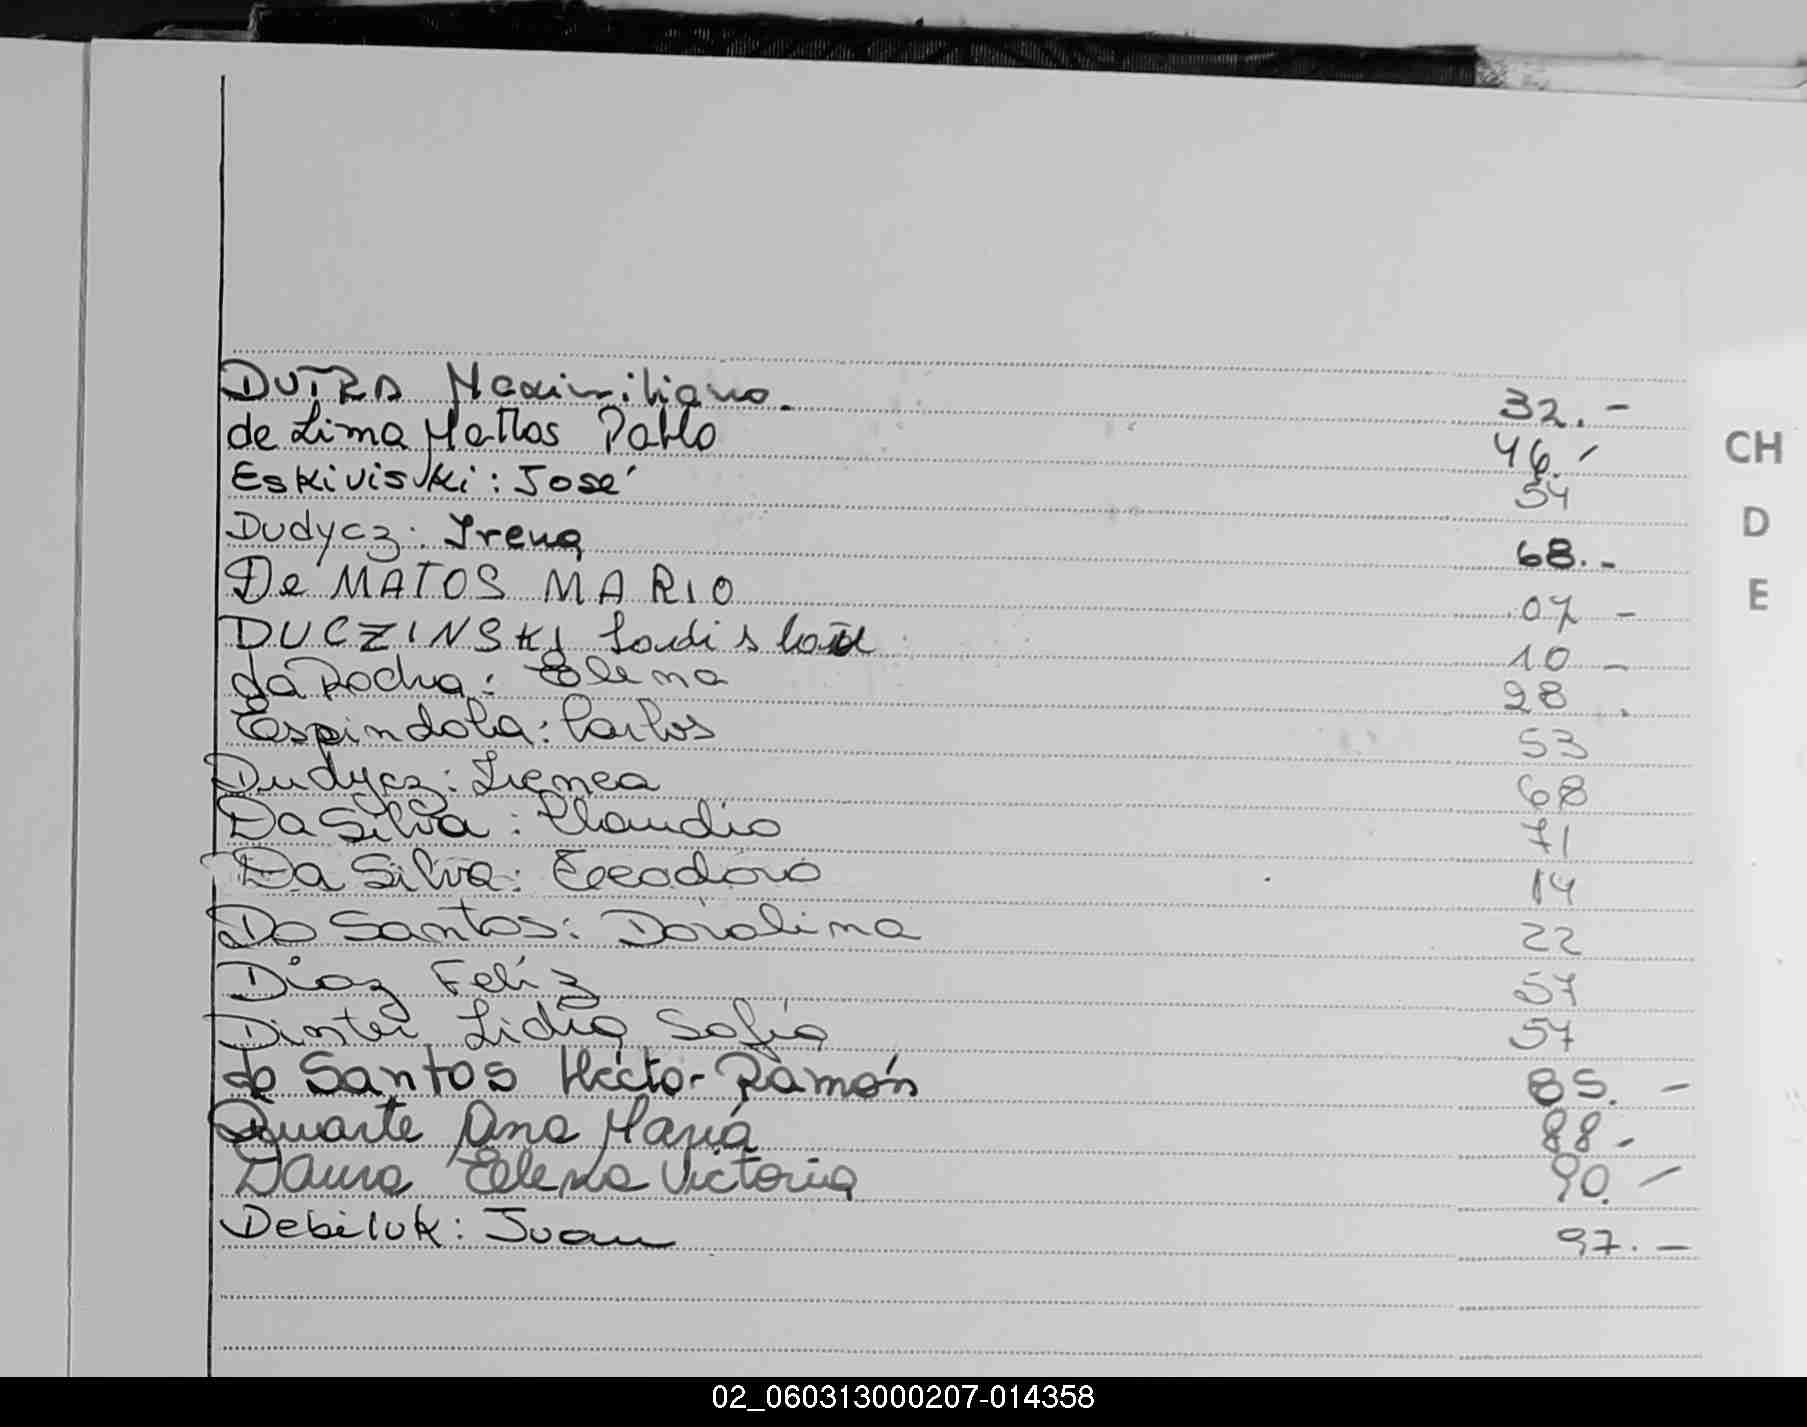 DUTRA Maximiliano. 32.-
de Lima Mattos Pablo 46.-
Eskiviski: José 54
Dudycz: Irena 68.-
De MATOS MARIO 07 -
DUCZINSKI Ladislau 10 -
da Rocha: Elena 28 .
Espindola: Carlos 53
Dudycz: Irenea 68
Da Silva: Claudio 71
Da Silva: Teodoro 14
Do Santos: Doralina 22
Diaz Feliz 57
Dinter Lidia Sofía 57
do Santos Héctor Ramón 85. -
Duarte Ana María 88.-
Daura Elena Victoria 90. -
Debiluk: Juan 97. -
CH
D
E
02_060313000207-014358